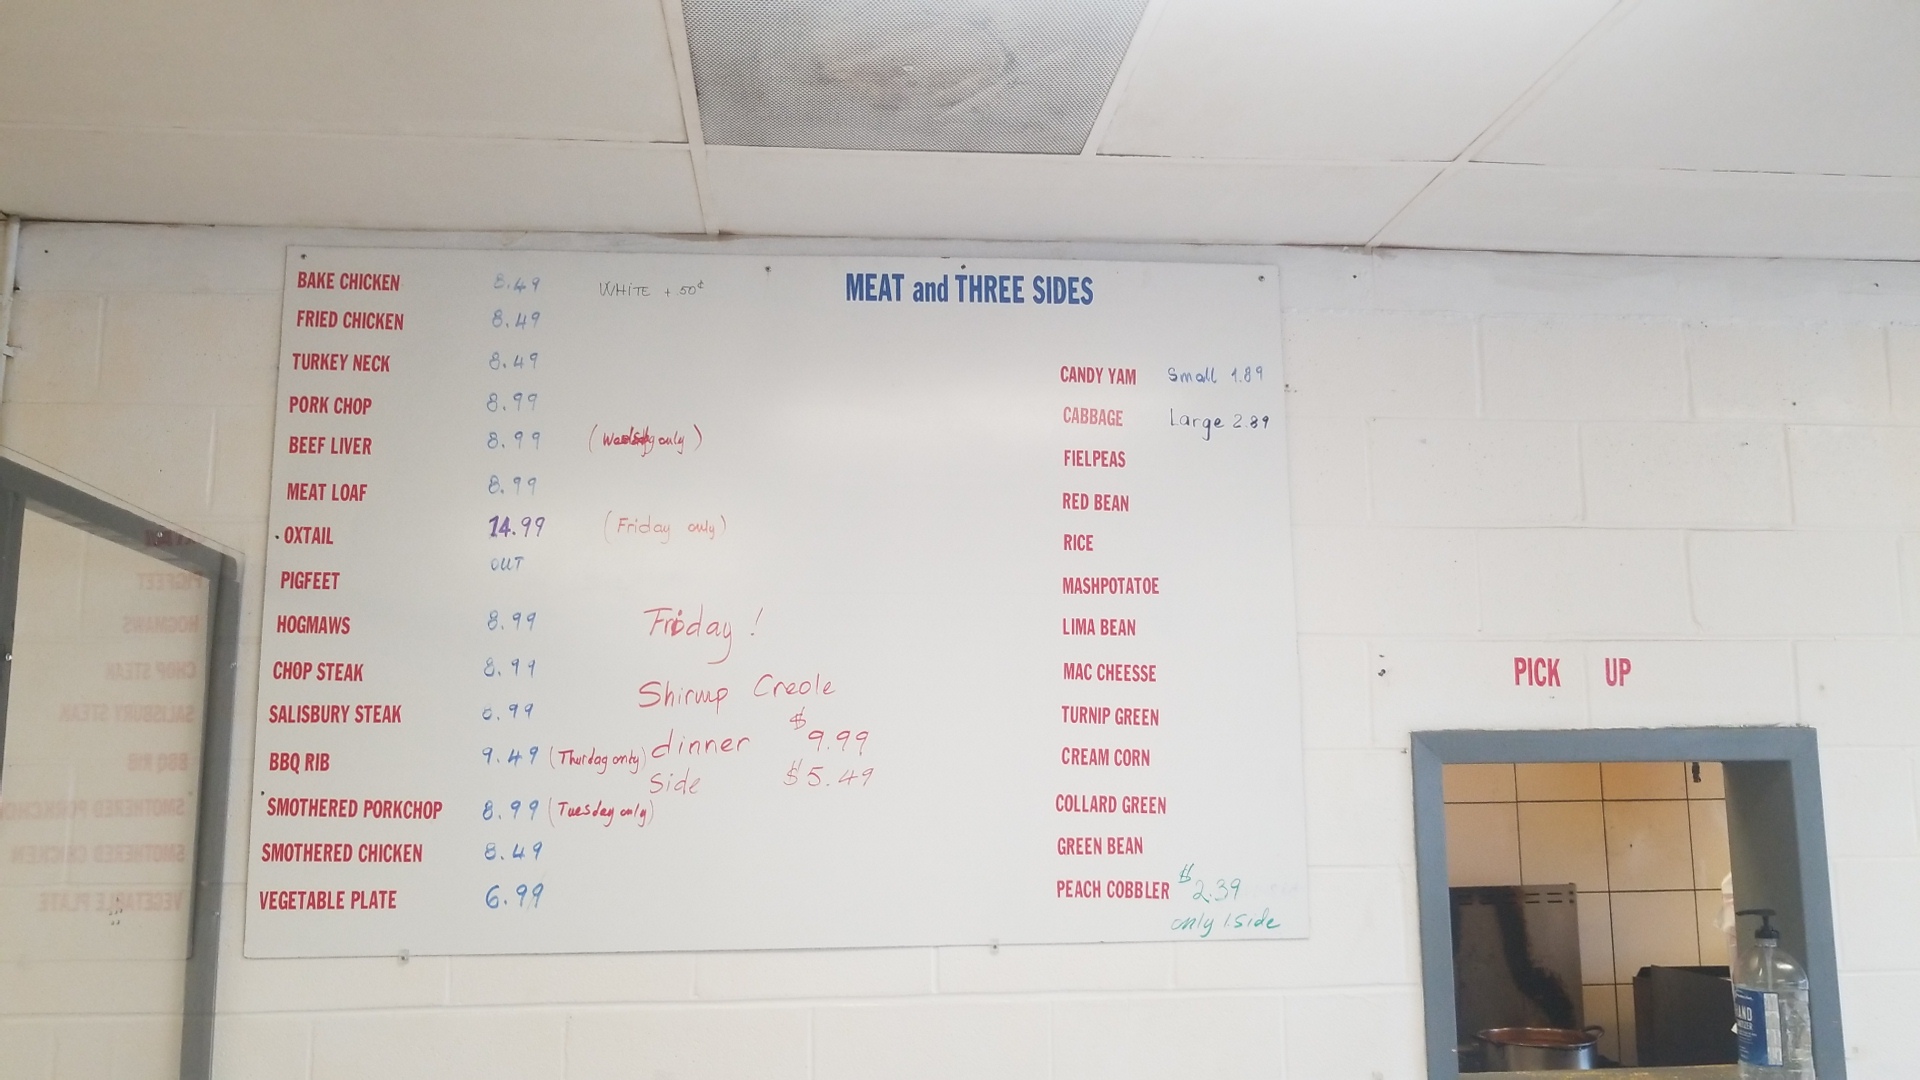 MEAT and THREE SIDES
BAKE CHICKEN 8.49 WHITE + .50¢
FRIED CHICKEN 8.49
TURKEY NECK 8.49
PORK CHOP 8.99
BEEF LIVER 8.99 ( only )
MEAT LOAF 8.99
OXTAIL 14.99 (Friday only)
PIGFEET OUT
HOGMAWS 8.99
CHOP STEAK 8.99
SALISBURY STEAK 8.99
BBQ RIB 9.49 (Thurday only)
SMOTHERED PORKCHOP 8.99 (Tuesday only)
SMOTHERED CHICKEN 8.49
VEGETABLE PLATE 6.99
Friday !
Shirmp Creole
dinner $9.99
Side $5.49
CANDY YAM Small 1.89
CABBAGE Large 2.89
FIELPEAS
RED BEAN
RICE
MASHPOTATOE
LIMA BEAN
MAC CHEESSE
TURNIP GREEN
CREAM CORN
COLLARD GREEN
GREEN BEAN
PEACH COBBLER $2.39
only 1 side
PICK UP